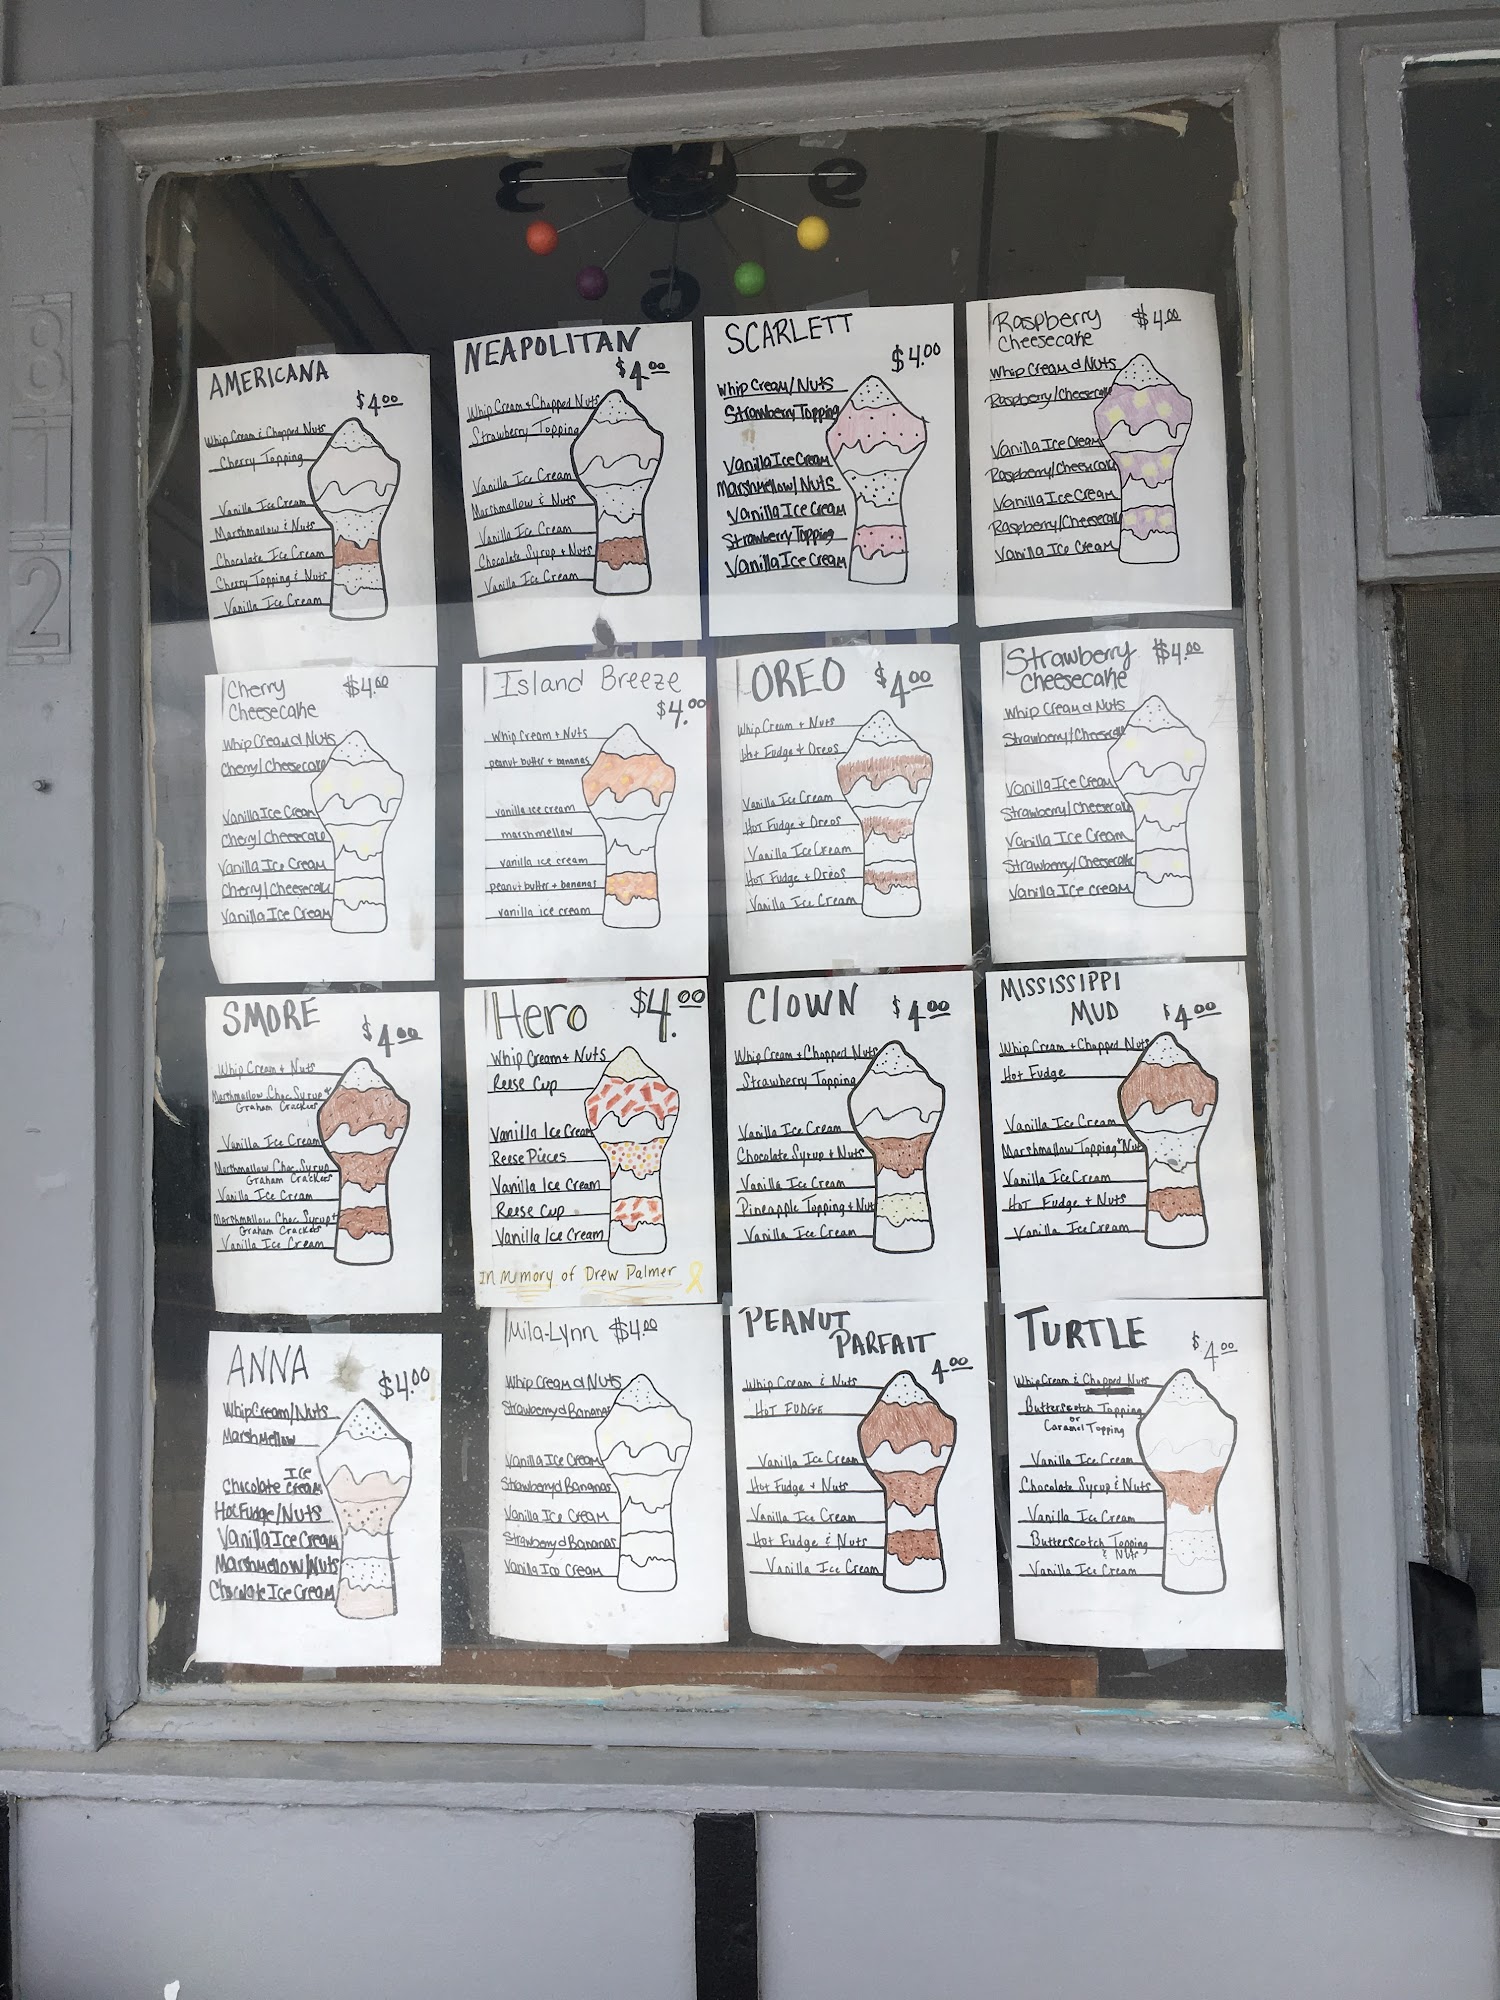 3
9
6
812
AMERICANA
$4.00
Whip Cream & Chopped Nuts
Cherry Topping
Vanilla Ice Cream
Marshmallow & Nuts
Chocolate Ice Cream
Cherry Topping & Nuts
Vanilla Ice Cream
NEAPOLITAN
$4.00
Whip Cream + Chopped Nuts
Strawberry Topping
Vanilla Ice Cream
Marshmallow & Nuts
Vanilla Ice Cream
Chocolate Syrup + Nuts
Vanilla Ice Cream
SCARLETT
$4.00
Whip Cream/Nuts
Strawberry Topping
Vanilla Ice Cream
Marshmellow/Nuts
Vanilla Ice Cream
Strawberry Topping
Vanilla Ice Cream
Raspberry $4.00
Cheesecake
Whip Cream & Nuts
Raspberry/Cheesecake
Vanilla Ice Cream
Raspberry/Cheesecake
Vanilla Ice Cream
Raspberry/Cheesecake
Vanilla Ice Cream
Cherry $4.00
Cheesecake
Whip Cream & Nuts
Cherry/Cheesecake
Vanilla Ice Cream
Cherry/Cheesecake
Vanilla Ice Cream
Cherry/Cheesecake
Vanilla Ice Cream
Island Breeze
$4.00
Whip Cream + Nuts
peanut butter + bananas
vanilla ice cream
marshmellow
vanilla ice cream
peanut butter + bananas
vanilla ice cream
OREO $4.00
Whip Cream + Nuts
Hot Fudge + Oreos
Vanilla Ice Cream
Hot Fudge + Oreos
Vanilla Ice Cream
Hot Fudge + Oreos
Vanilla Ice Cream
Strawberry $4.00
Cheesecake
Whip Cream & Nuts
Strawberry/Cheesecake
Vanilla Ice Cream
Strawberry/Cheesecake
Vanilla Ice Cream
Strawberry/Cheesecake
Vanilla Ice Cream
SMORE
$4.00
Whip Cream + Nuts
Marshmallow Choc Syrup +
Graham Crackers
Vanilla Ice Cream
Marshmallow Choc Syrup
Graham Crackers
Vanilla Ice Cream
Marshmallow Choc Syrup +
Graham Crackers
Vanilla Ice Cream
Hero $4.00
Whip Cream + Nuts
Reese Cup
Vanilla Ice Cream
Reese Pieces
Vanilla Ice Cream
Reese Cup
Vanilla Ice Cream
In memory of Drew Palmer
CLOWN $4.00
Whip Cream + Chopped Nuts
Strawberry Topping
Vanilla Ice Cream
Chocolate Syrup + Nuts
Vanilla Ice Cream
Pineapple Topping + Nuts
Vanilla Ice Cream
MISSISSIPPI
MUD $4.00
Whip Cream + Chopped Nuts
Hot Fudge
Vanilla Ice Cream
Marshmallow Topping + Nuts
Vanilla Ice Cream
Hot Fudge + Nuts
Vanilla Ice Cream
ANNA
$4.00
Whip Cream/Nuts
Marshmellow
Ice
Chocolate Cream
Hot Fudge/Nuts
Vanilla Ice Cream
Marshmellow/Nuts
Chocolate Ice Cream
Mila-Lynn $4.00
Whip Cream & Nuts
Strawberry & Bananas
Vanilla Ice Cream
Strawberry & Bananas
Vanilla Ice Cream
Strawberry & Bananas
Vanilla Ice Cream
PEANUT
PARFAIT
4.00
Whip Cream & Nuts
HOT FUDGE
Vanilla Ice Cream
Hot Fudge + Nuts
Vanilla Ice Cream
Hot Fudge & Nuts
Vanilla Ice Cream
TURTLE
$4.00
Whip Cream & Chopped Nuts
Butterscotch Topping
or
Caramel Topping
Vanilla Ice Cream
Chocolate Syrup & Nuts
Vanilla Ice Cream
Butterscotch Topping
& Nuts
Vanilla Ice Cream